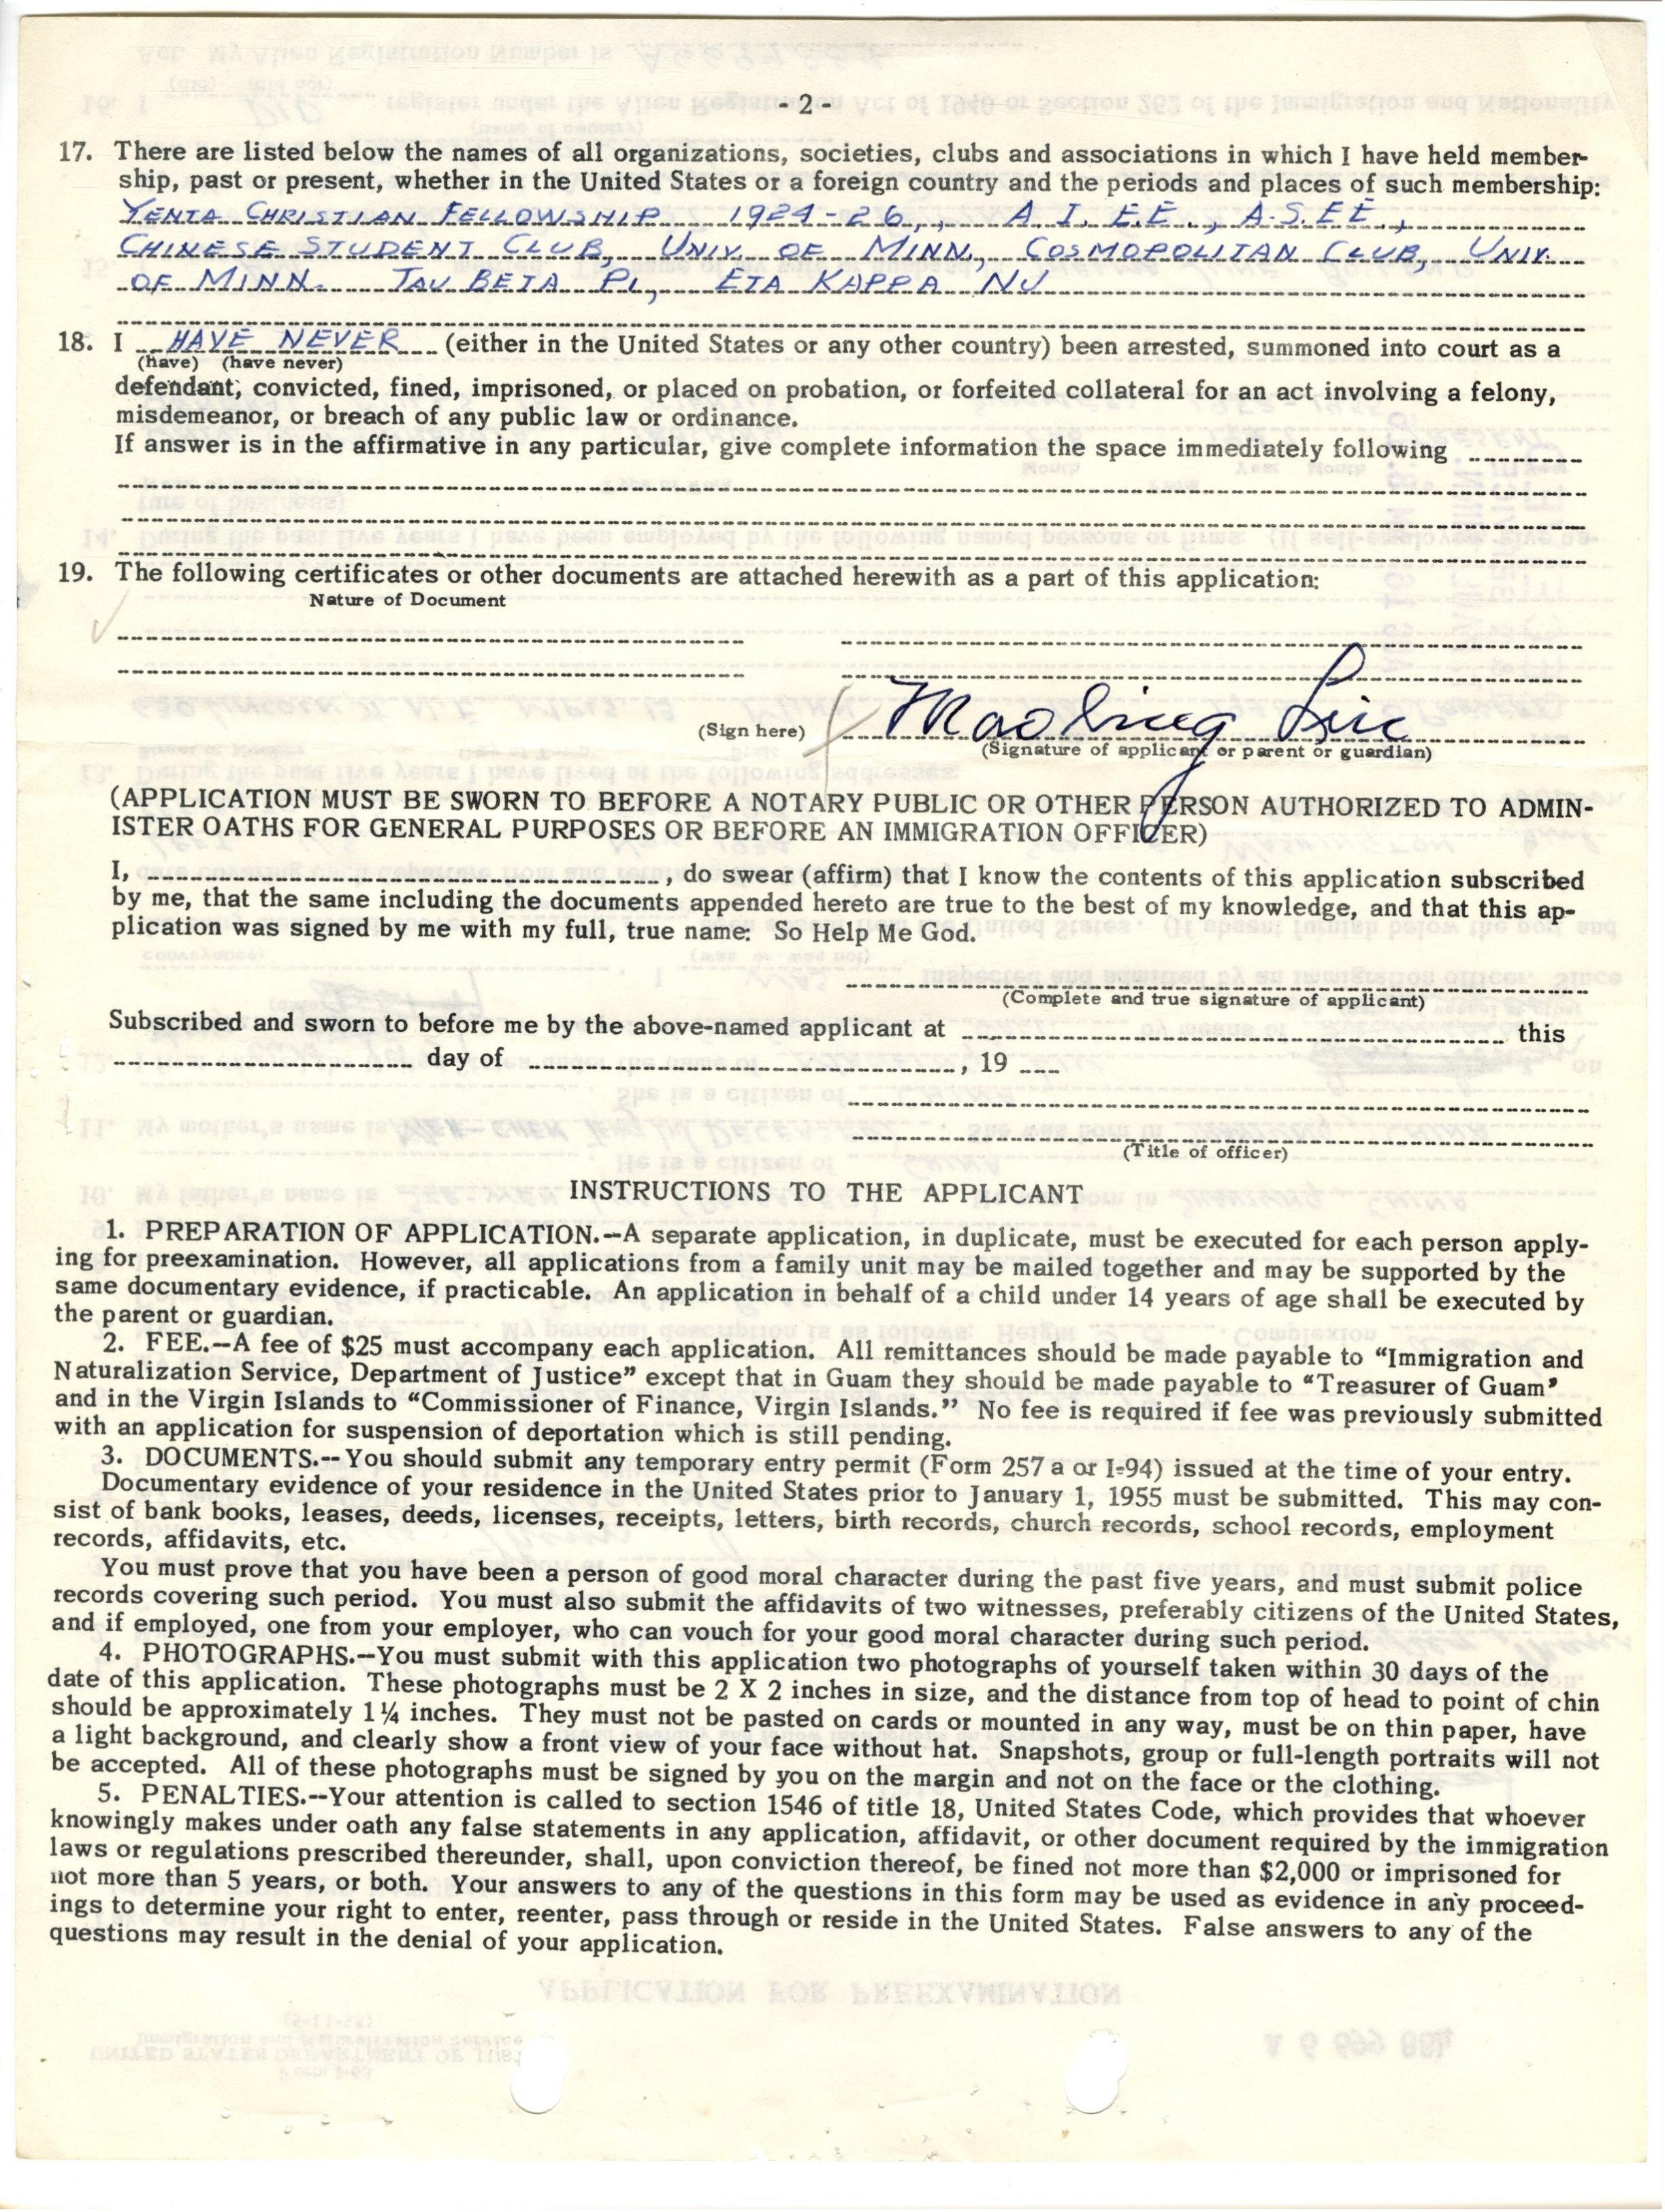 - 2 -
17. There are listed below the names of all organizations, societies, clubs and associations in which I have held member-
ship, past or present, whether in the United States or a foreign country and the periods and places of such membership:
YENTA CHRISTIAN FELLOWSHIP 1924-26,, A I. E.E., A.S.E.E.,
CHINESE STUDENT CLUB, UNIV. OF MINN., COSMOPOLITAN CLUB, UNIV.
OF MINN. TAU BETA PI, ETA KAPPA NU
18. I HAVE NEVER (either in the United States or any other country) been arrested, summoned into court as a
(have) (have never)
defendant, convicted, fined, imprisoned, or placed on probation, or forfeited collateral for an act involving a felony,
misdemeanor, or breach of any public law or ordinance.
If answer is in the affirmative in any particular, give complete information the space immediately following
19. The following certificates or other documents are attached herewith as a part of this application:
Nature of Document
(Sign here)
(Signature of applicant or parent or guardian)
(APPLICATION MUST BE SWORN TO BEFORE A NOTARY PUBLIC OR OTHER PERSON AUTHORIZED TO ADMIN-
ISTER OATHS FOR GENERAL PURPOSES OR BEFORE AN IMMIGRATION OFFICER)
I, , do swear (affirm) that I know the contents of this application subscribed
by me, that the same including the documents appended hereto are true to the best of my knowledge, and that this ap-
plication was signed by me with my full, true name: So Help Me God.
(Complete and true signature of applicant)
Subscribed and sworn to before me by the above-named applicant at this
day of , 19
(Title of officer)
INSTRUCTIONS TO THE APPLICANT
1. PREPARATION OF APPLICATION.--A separate application, in duplicate, must be executed for each person apply-
ing for preexamination. However, all applications from a family unit may be mailed together and may be supported by the
same documentary evidence, if practicable. An application in behalf of a child under 14 years of age shall be executed by
the parent or guardian.
2. FEE.--A fee of $25 must accompany each application. All remittances should be made payable to "Immigration and
Naturalization Service, Department of Justice" except that in Guam they should be made payable to "Treasurer of Guam"
and in the Virgin Islands to "Commissioner of Finance, Virgin Islands." No fee is required if fee was previously submitted
with an application for suspension of deportation which is still pending.
3. DOCUMENTS.--You should submit any temporary entry permit (Form 257 a or I-94) issued at the time of your entry.
Documentary evidence of your residence in the United States prior to January 1, 1955 must be submitted. This may con-
sist of bank books, leases, deeds, licenses, receipts, letters, birth records, church records, school records, employment
records, affidavits, etc.
You must prove that you have been a person of good moral character during the past five years, and must submit police
records covering such period. You must also submit the affidavits of two witnesses, preferably citizens of the United States,
and if employed, one from your employer, who can vouch for your good moral character during such period.
4. PHOTOGRAPHS.--You must submit with this application two photographs of yourself taken within 30 days of the
date of this application. These photographs must be 2 X 2 inches in size, and the distance from top of head to point of chin
should be approximately 1¼ inches. They must not be pasted on cards or mounted in any way, must be on thin paper, have
a light background, and clearly show a front view of your face without hat. Snapshots, group or full-length portraits will not
be accepted. All of these photographs must be signed by you on the margin and not on the face or the clothing.
5. PENALTIES.--Your attention is called to section 1546 of title 18, United States Code, which provides that whoever
knowingly makes under oath any false statements in any application, affidavit, or other document required by the immigration
laws or regulations prescribed thereunder, shall, upon conviction thereof, be fined not more than $2,000 or imprisoned for
not more than 5 years, or both. Your answers to any of the questions in this form may be used as evidence in any proceed-
ings to determine your right to enter, reenter, pass through or reside in the United States. False answers to any of the
questions may result in the denial of your application.